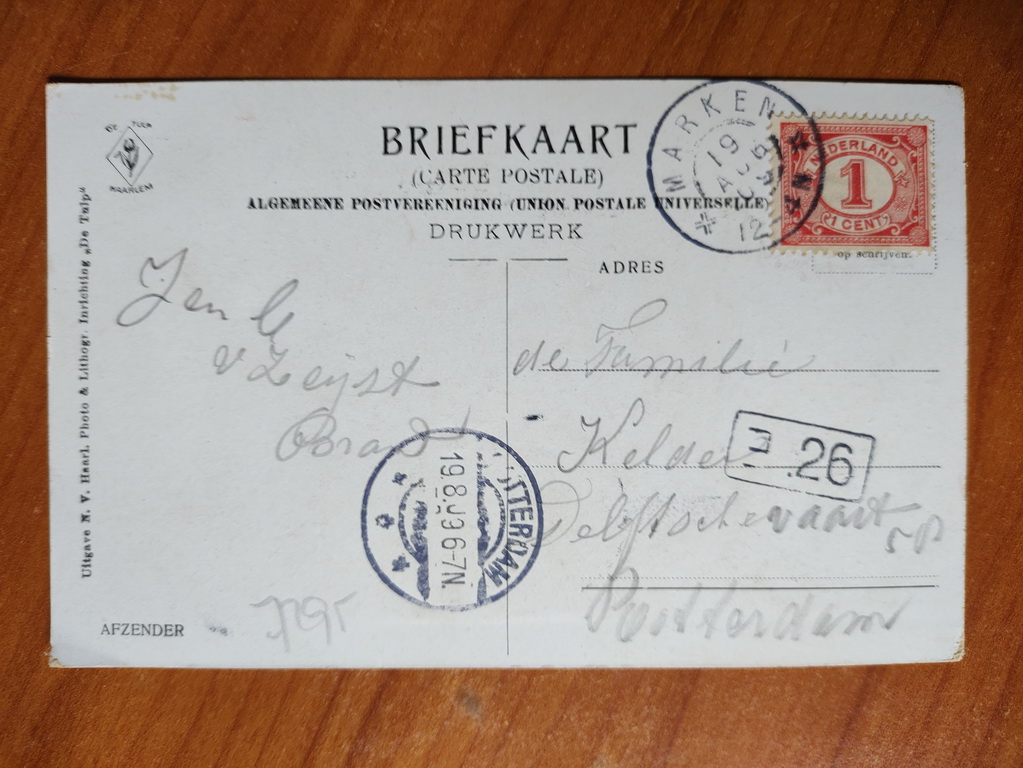 DE TULP
HAARLEM
BRIEFKAART
(CARTE POSTALE)
ALGEMEENE POSTVEREENIGING (UNION POSTALE UNIVERSELLE)
DRUKWERK
MARKEN
19
12
NEDERLAND
1
(1 CENT)
op schrijven.
ADRES
Uitgave N. V. Haarl. Photo & Lithogr. Inrichting „De Tulp“
v Zeijst
de Familie
Kelder
Delftschevaart
Rotterdam
26
TTERDAM
19.8.09 6-7N.
AFZENDER